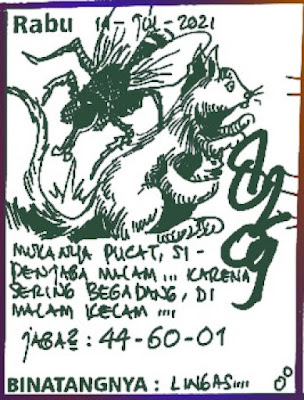 Rabu 14-JUL-2021
MUKANYA PUCAT, SI-
PENJAGA MALAM ... KARENA
SERING BEGADANG, DI
MALAM KELAM ....
JAGA2 : 44-60-01
BINATANGNYA : LINGAS....